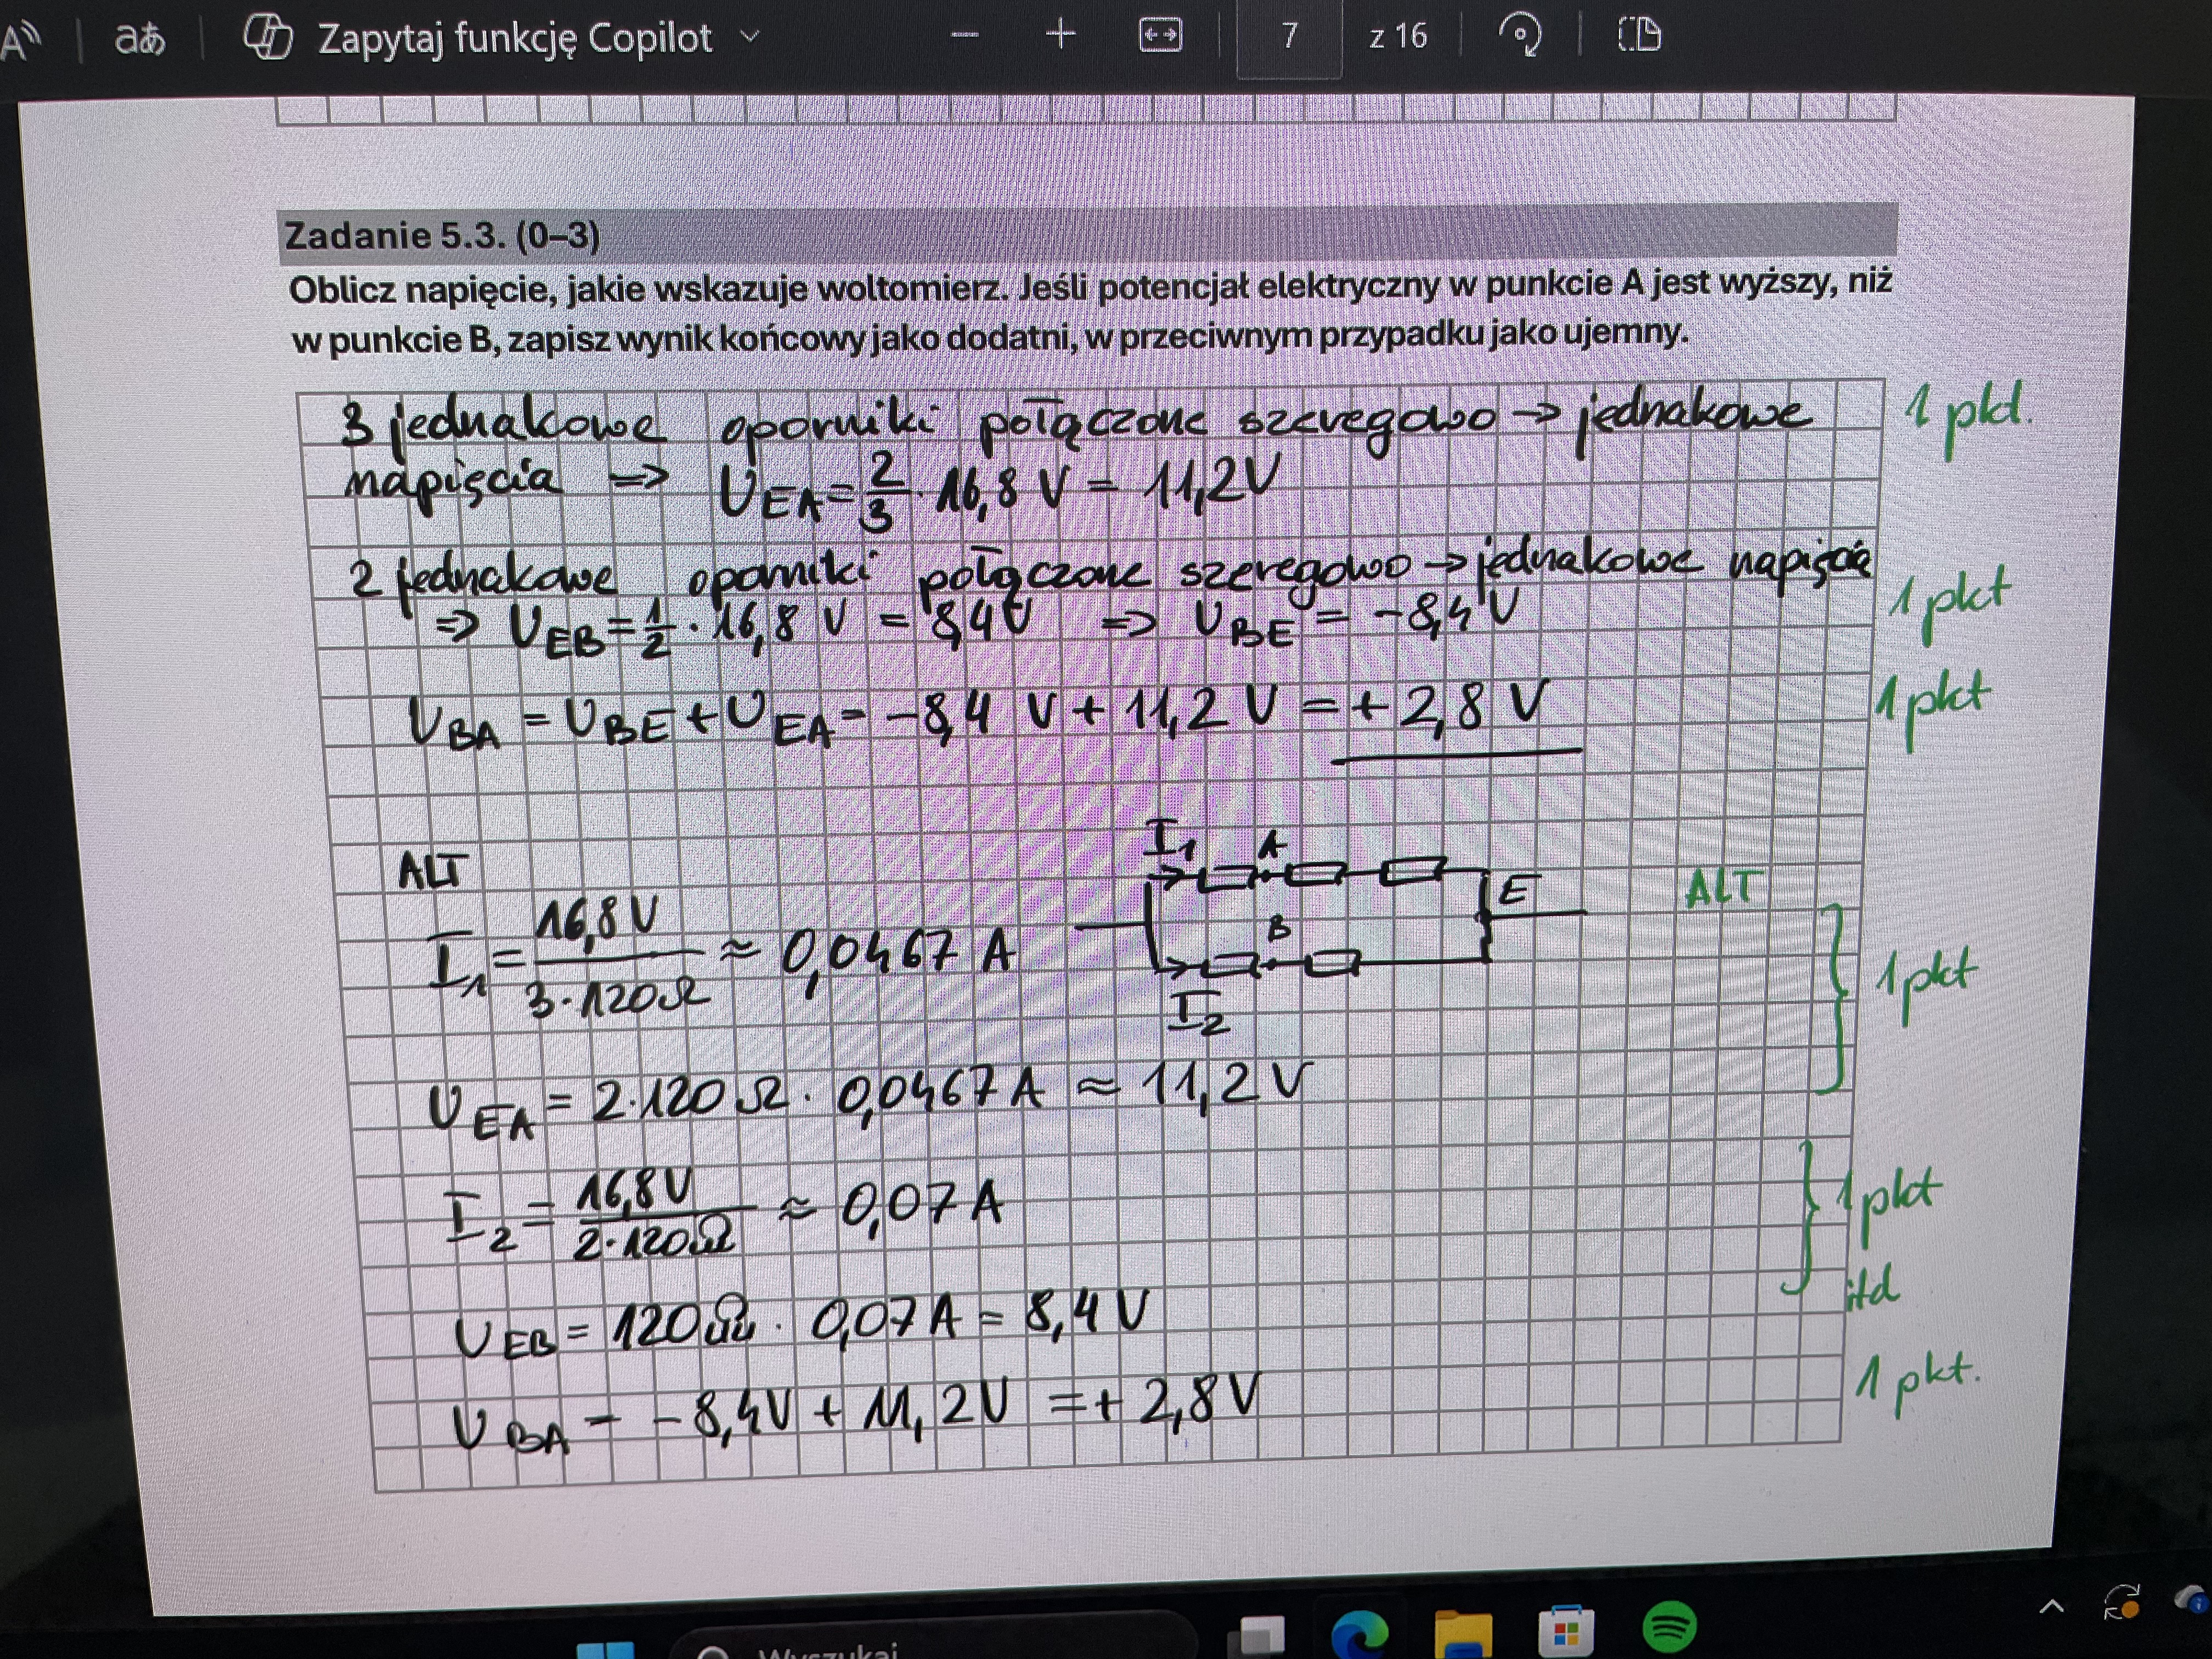 A
aあ
Zapytaj funkcję Copilot
7
z 16
Zadanie 5.3. (0–3)
Oblicz napięcie, jakie wskazuje woltomierz. Jeśli potencjał elektryczny w punkcie A jest wyższy, niż
w punkcie B, zapisz wynik końcowy jako dodatni, w przeciwnym przypadku jako ujemny.
3 jednakowe oporniki połączone szeregowo → jednakowe 1 pkt.
napięcia => U_EA = 2/3 · 16,8 V = 11,2V
2 jednakowe oporniki połączone szeregowo → jednakowe napięcia
=> U_EB = 1/2 · 16,8 V = 8,4V => U_BE = -8,4 V 1 pkt
U_BA = U_BE + U_EA = -8,4 V + 11,2 V = +2,8 V 1 pkt
I₁ A
ALT
E ALT
I₁ = 16,8V / 3·120Ω ≈ 0,0467 A
B
1 pkt
I₂
U_EA = 2·120Ω · 0,0467A ≈ 11,2 V
I₂ = 16,8V / 2·120Ω ≈ 0,07A
1 pkt
itd
U_EB = 120Ω · 0,07A = 8,4 V
U_BA = -8,4V + 11,2V = +2,8V 1 pkt.
Wyszukaj